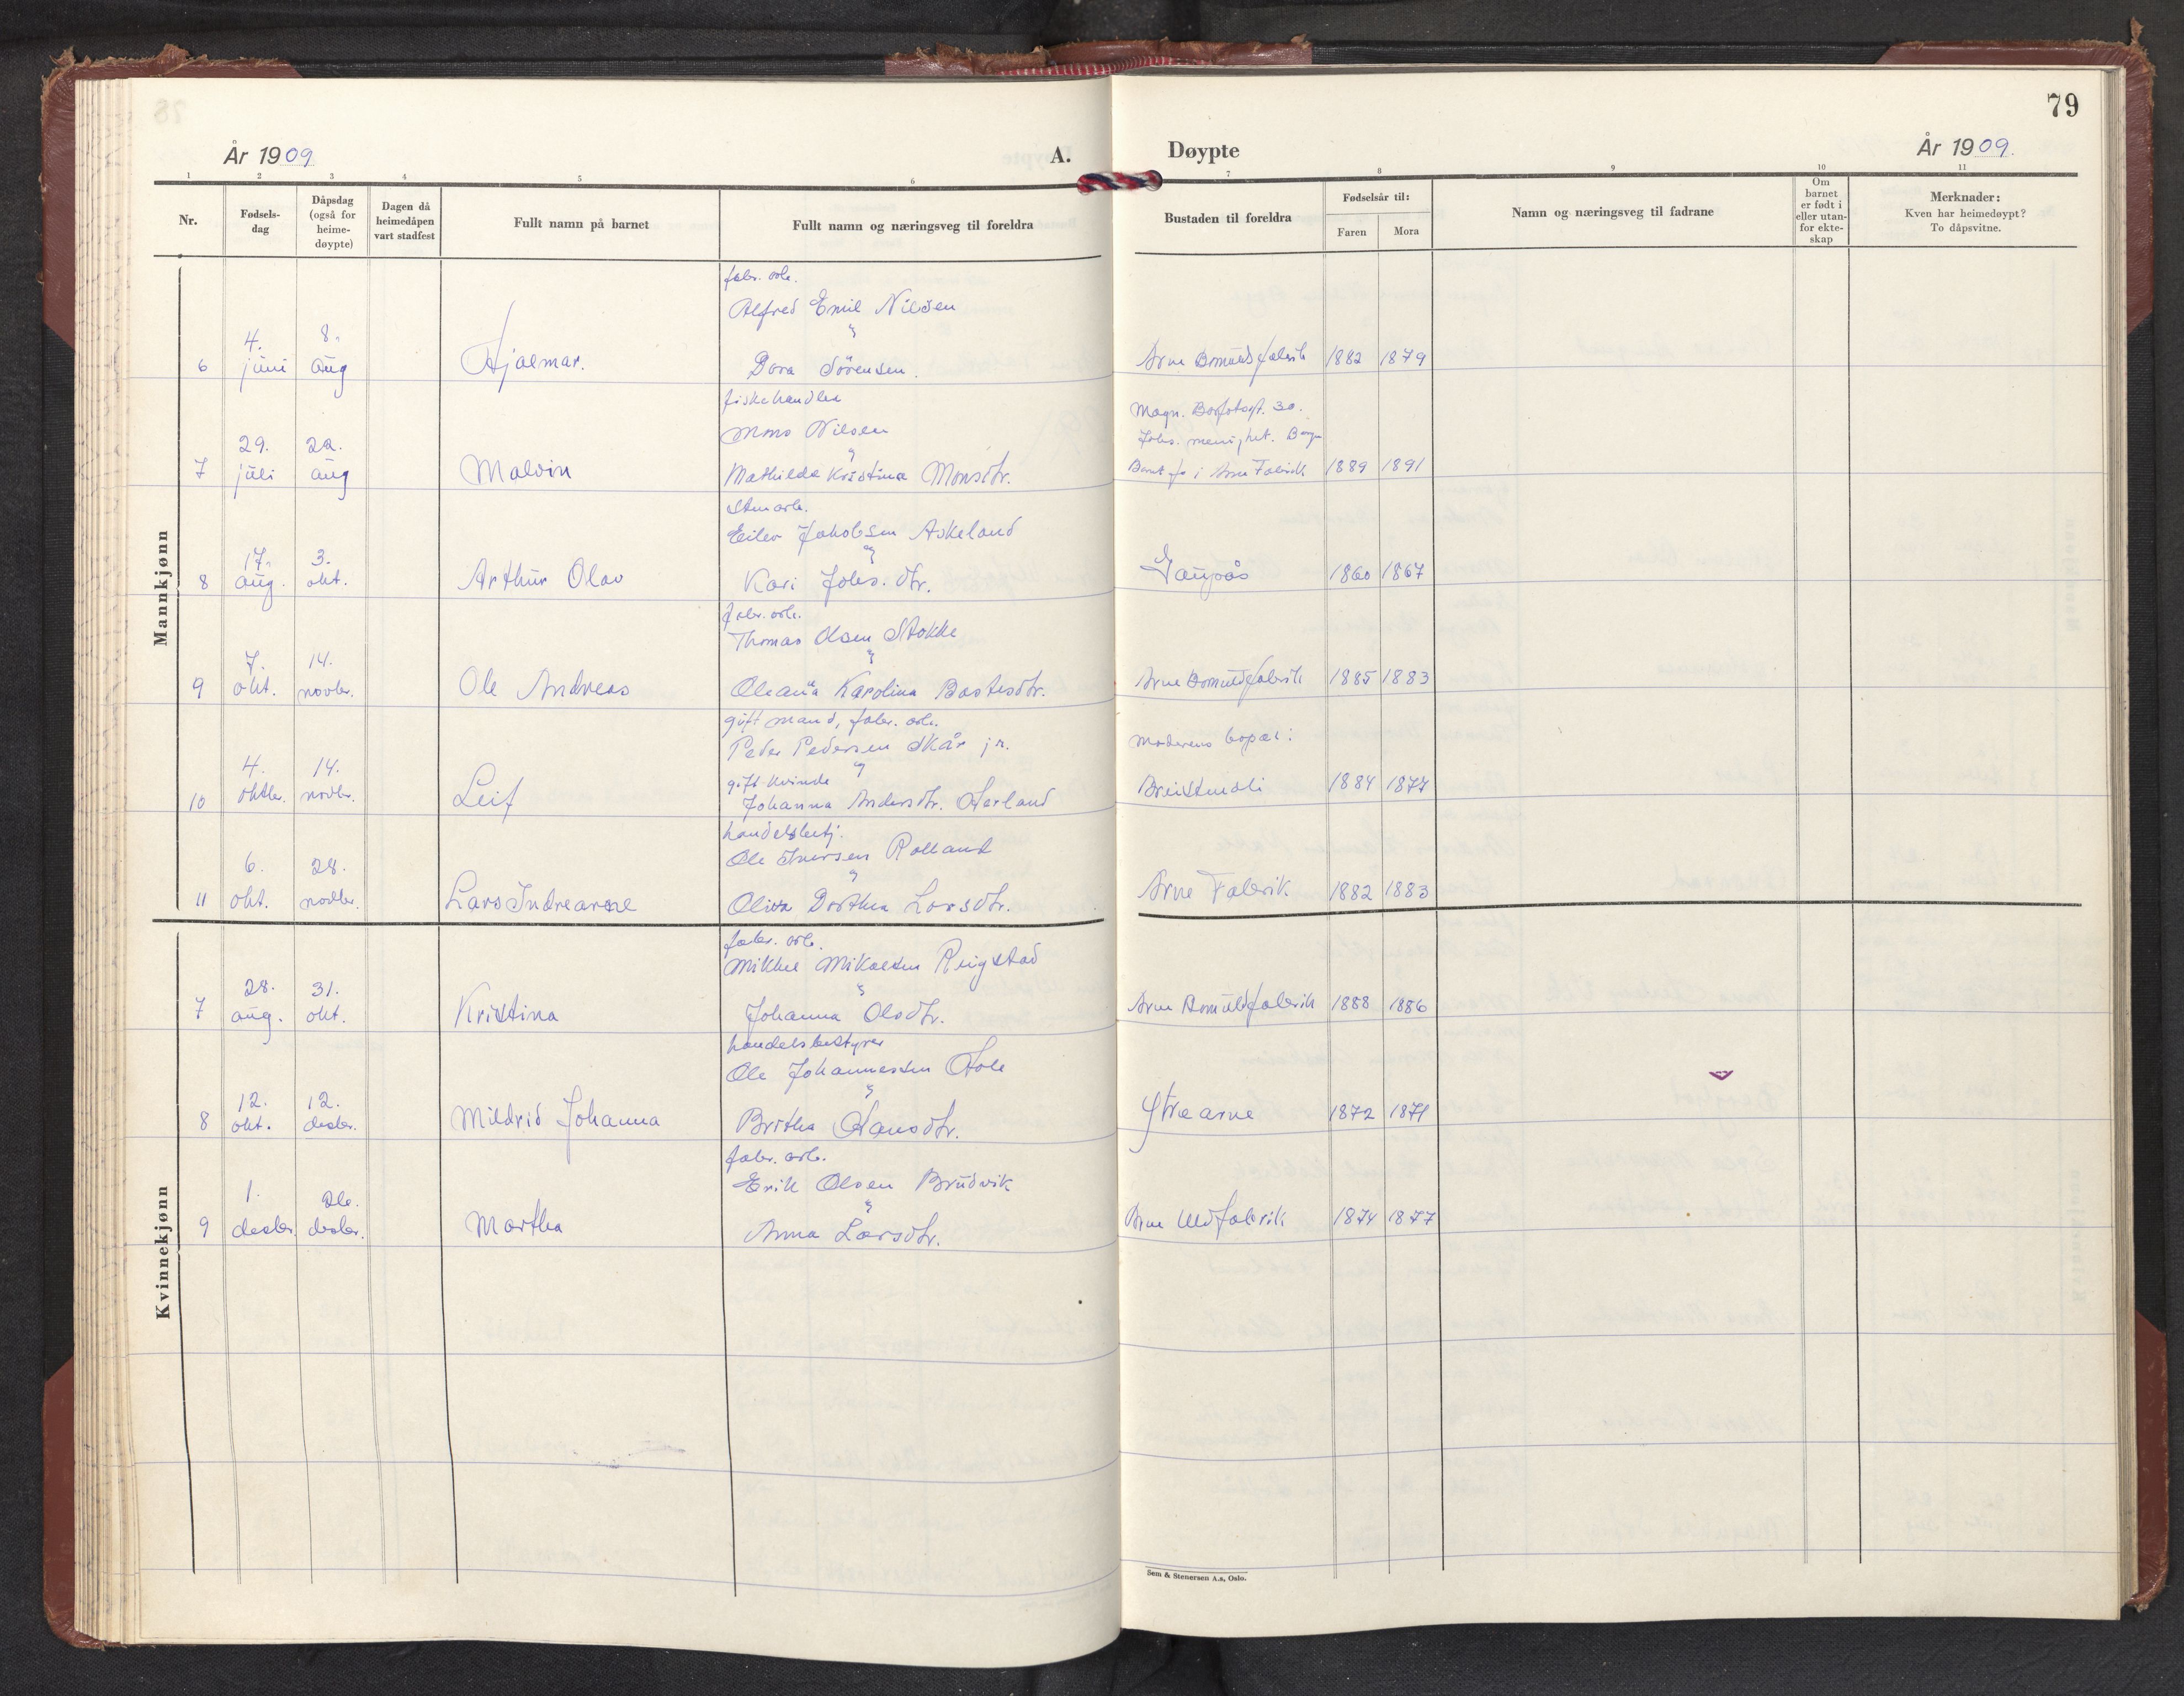 79
År 1909
A.
Døypte
År 1909.
1 2 3 4 5 6 7 8 9 10 11
Nr.
Fødsels-
dag
Dåpsdag
(også for
heime-
døypte)
Dagen då
heimedåpen
vart stadfest
Fullt namn på barnet
Fullt namn og næringsveg til foreldra
Bustaden til foreldra
Fødselsår til:
Faren Mora
Namn og næringsveg til fadrane
Om
barnet
er født i
eller utan-
for ekte-
skap
Merknader:
Kven har heimedøypt?
To dåpsvitne.
Mannkjønn
fabr. arb.
Alfred Emil Nilsen
4. 8.
6 juni aug Hjalmar. Dora Sörensen. Arne Bomuldsfabrik 1882 1879
fiskehandler
Mons Nilsen
Magn. Barfotsgt. 30.
Johs. menighet. Berg
29. 22.
7 juli aug Malvin Mathilde Kristina Monsdtr. Barnet fø i Arne Fabrik 1889 1891
Stenarb.
Eilev Jakobsen Askeland
17. 3.
8 aug. okt. Arthur Olav Kari Johs. dtr. Gaupås 1860 1867
fabr. arb.
Thomas Olsen Stokke
7. 14.
9 okt. novbr. Ole Andreas Oleana Karolina Bastesdtr. Arne Bomuldfabrik 1885 1883
gift mand, fabr. arb.
Peder Pedersen Skår jr.
Moderens bopæl:
4. 14.
gift kvinde
10 oktbr. novbr. Leif Johanna Andersdtr. Garland Breistendli 1884 1877
handelsbetj.
Ole Iversen Rolland
6. 28.
11 okt. novbr. Lars Indrearne Oliva Dorthea Larsdtr. Arne Fabrik 1882 1883
Kvinnekjønn
fabr. arb.
Mikkel Mikalsen Reigstad
28. 31.
7 aug. okt. Kristina Johanna Olsdtr. Arne Bomuldfabrik 1888 1886
handelsbestyrer
Ole Johannessen Hole
12. 12.
8 okt. desbr. Mildrid Johanna Britha Hansdtr. Ytrearne 1872 1871
fabr. arb.
Erik Olsen Brudvik
1. 26.
9 desbr. desbr. Martha Anna Larsdtr. Arne Uldfabrik 1874 1877
Sem & Stenersen A.s, Oslo.